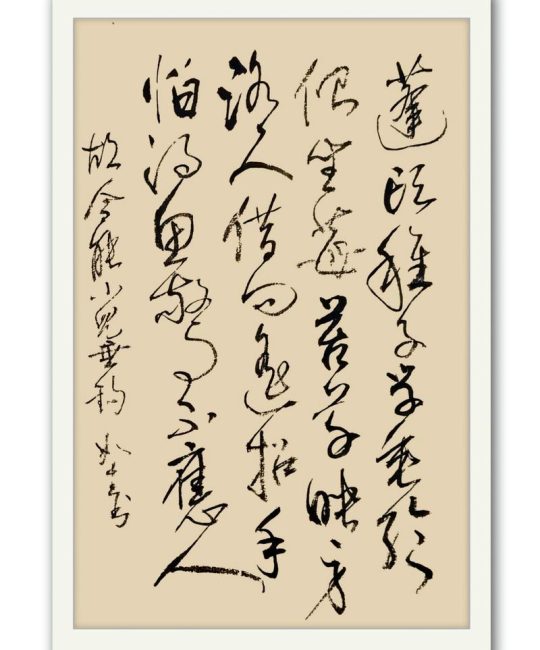 蓬头稚子学垂纶
侧坐莓苔草映身
路人借问遥招手
怕得鱼驚不應人
胡令能小兒垂钓